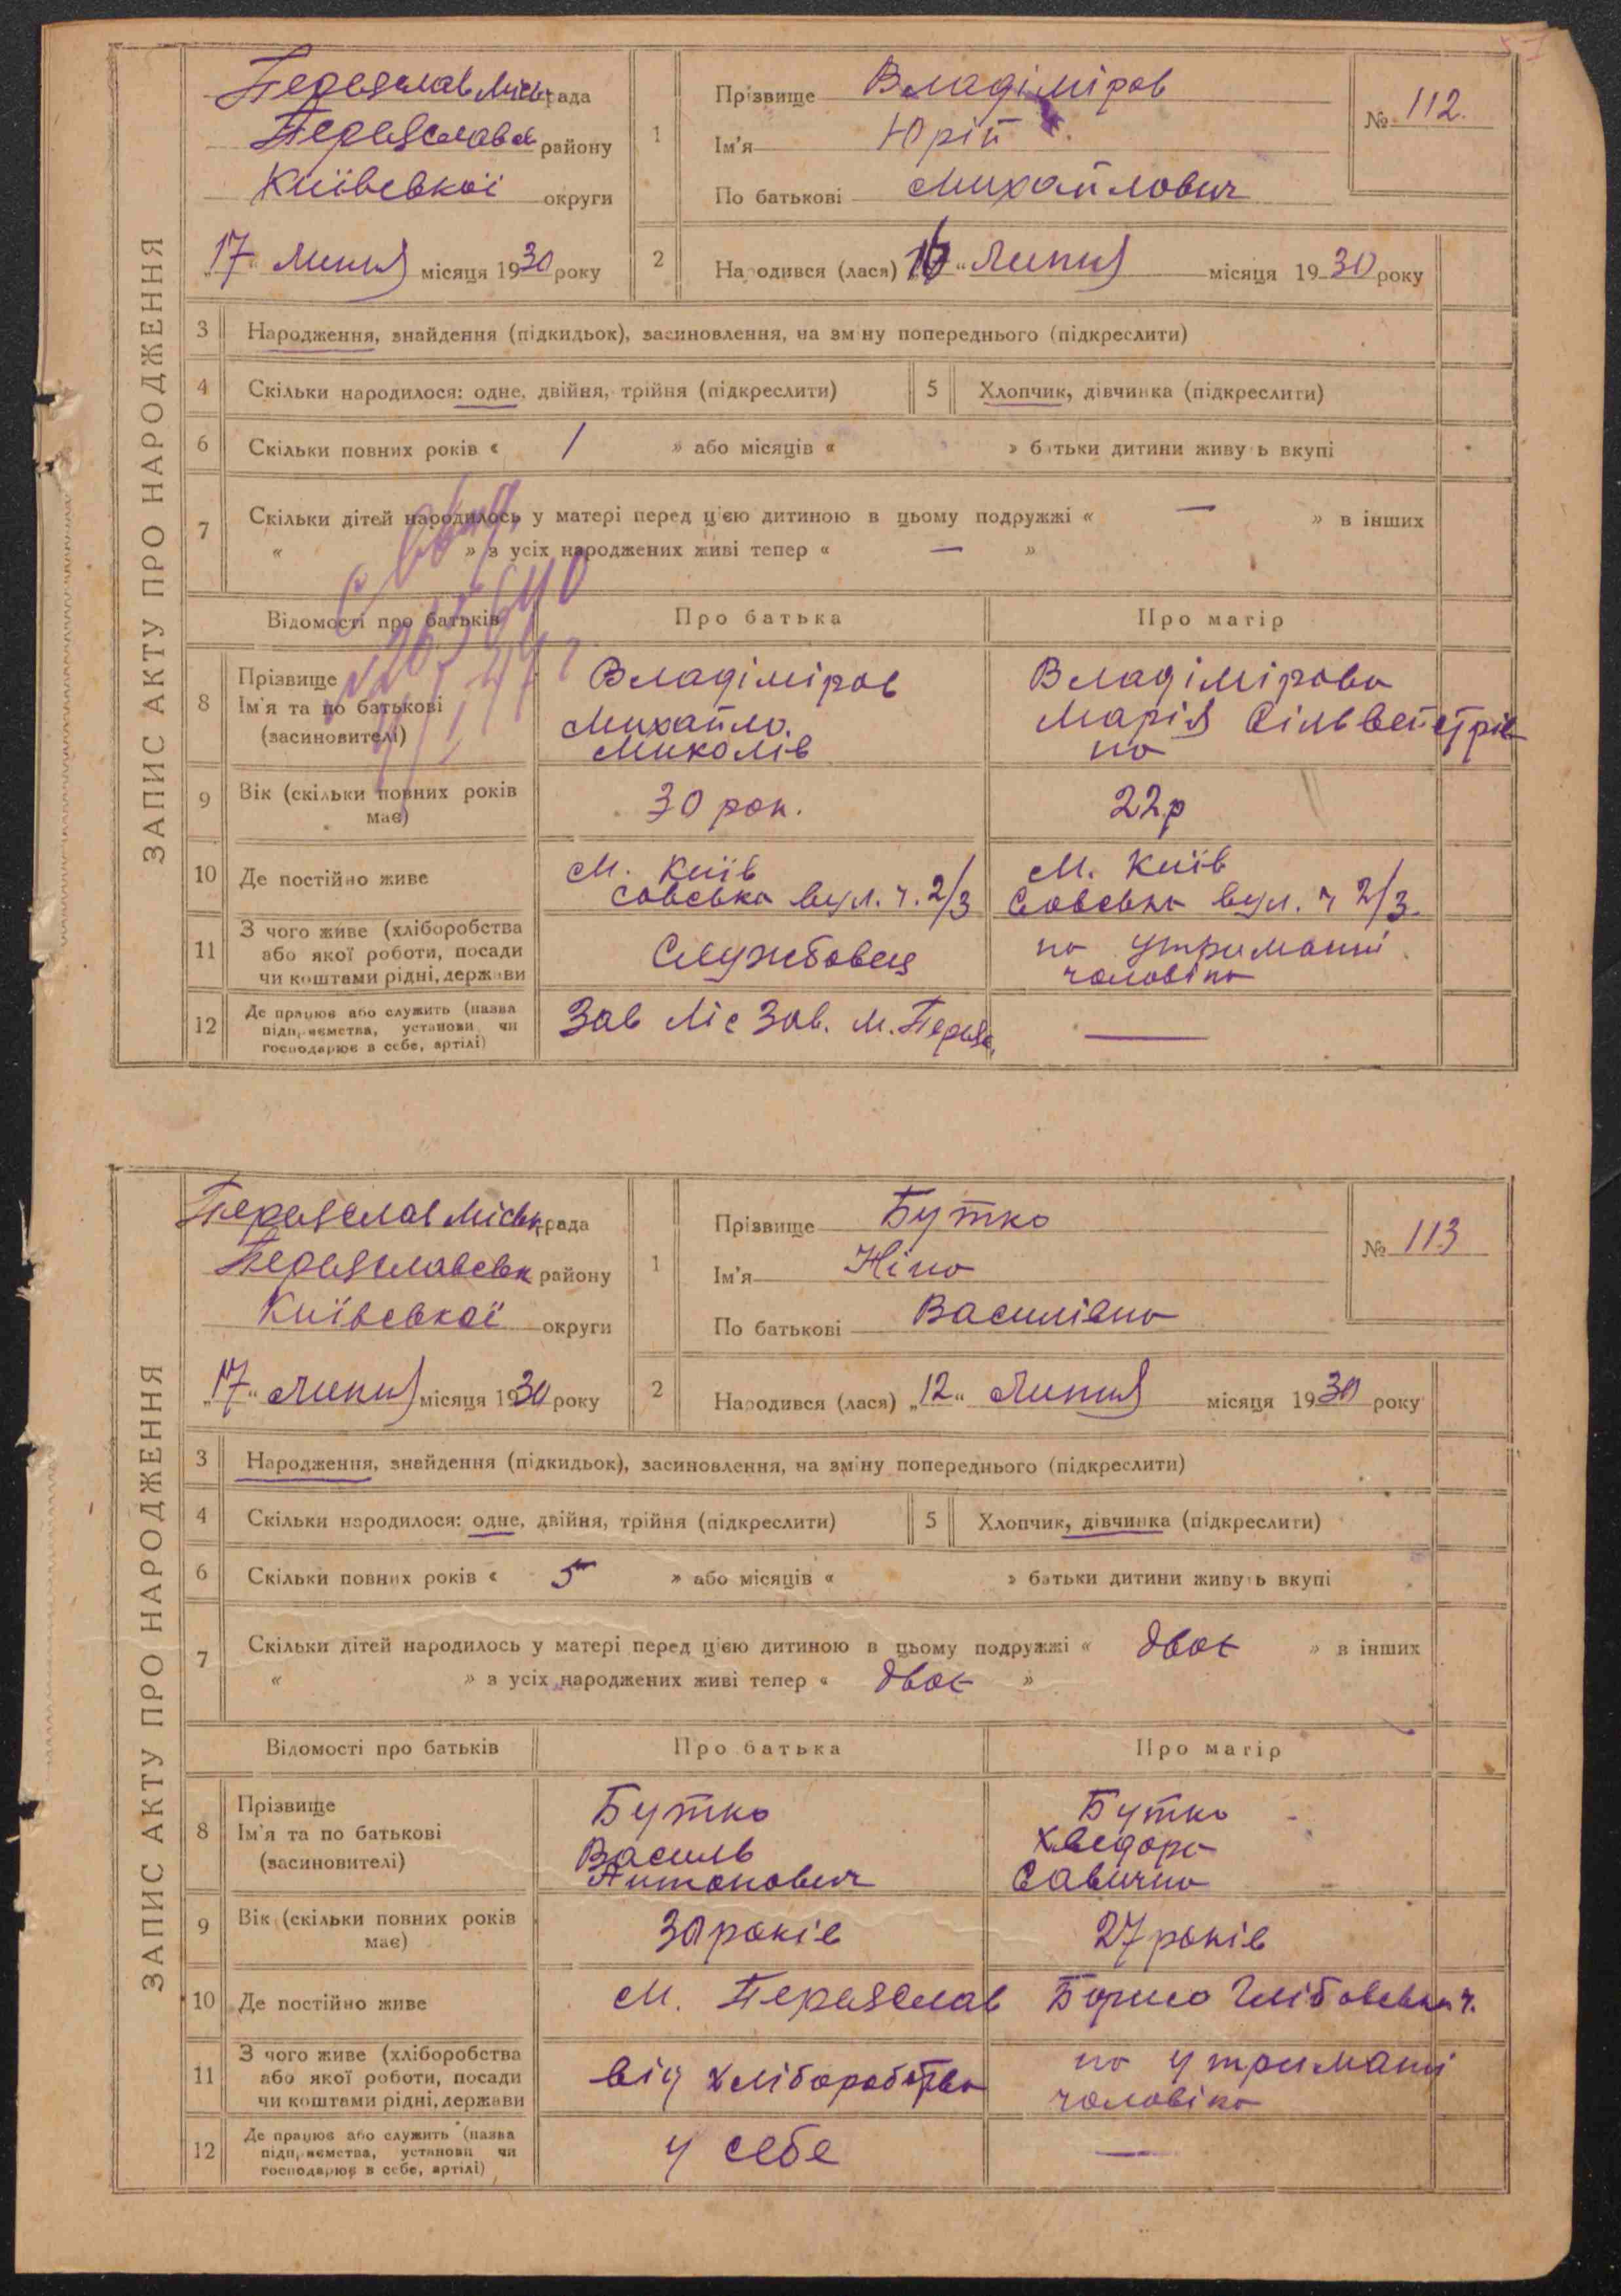 ЗАПИС АКТУ ПРО НАРОДЖЕННЯ
Переяслав Міськ рада
Переяславськ району
Київської округи
„17“ Липня місяця 1930 року
1
Прізвище Владіміров
Ім'я Юрій
По батькові Михайлович
№ 112.
2
Народився (лася) „16“ Липня місяця 1930 року
3 Народження, знайдення (підкидьок), засиновлення, на зміну попереднього (підкреслити)
4 Скільки народилося: одне, двійня, трійня (підкреслити) 5 Хлопчик, дівчинка (підкреслити)
6 Скільки повних років « 1 » або місяців « » батьки дитини живуть вкупі
7 Скільки дітей народилось у матері перед цією дитиною в цьому подружжі « — » в інших
« » з усіх народжених живі тепер « — »
Відомості про батьків Про батька Про матір
8 Прізвище
Ім'я та по батькові
(засиновителі)
Владіміров
Михайло.
Миколів
Владімірова
Марія Сільвестрів
на
9 Вік (скільки повних років
має)
30 рок.
22р
10 Де постійно живе
М. Київ
Совська вул. ч. 2/3
М. Київ
Совська вул. ч 2/3.
11 З чого живе (хліборобства
або якої роботи, посади
чи коштами рідні, держави
Службовець
на утриманні
чоловіка
12 Де працює або служить (назва
підприємства, установи чи
господарює в себе, артілі)
Зав Ліс Зав. м. Переяс.
—
ЗАПИС АКТУ ПРО НАРОДЖЕННЯ
Переяслав Міськ рада
Переяславськ району
Київської округи
„17“ Липня місяця 1930 року
1
Прізвище Бутко
Ім'я Ніна
По батькові Василівна
№ 113
2
Народився (лася) „12“ Липня місяця 1930 року
3 Народження, знайдення (підкидьок), засиновлення, на зміну попереднього (підкреслити)
4 Скільки народилося: одне, двійня, трійня (підкреслити) 5 Хлопчик, дівчинка (підкреслити)
6 Скільки повних років « 5 » або місяців « » батьки дитини живуть вкупі
7 Скільки дітей народилось у матері перед цією дитиною в цьому подружжі « двоє » в інших
« » з усіх народжених живі тепер « двоє »
Відомості про батьків Про батька Про матір
8 Прізвище
Ім'я та по батькові
(засиновителі)
Бутко
Василь
Антонович
Бутко
Хведора
Савична
9 Вік (скільки повних років
має)
30 років
27 років
10 Де постійно живе
м. Переяслав Борисо Глібовська ч.
11 З чого живе (хліборобства
або якої роботи, посади
чи коштами рідні, держави
від хліборобства
на утриманні
чоловіка
12 Де працює або служить (назва
підприємства, установи чи
господарює в себе, артілі)
у себе
—